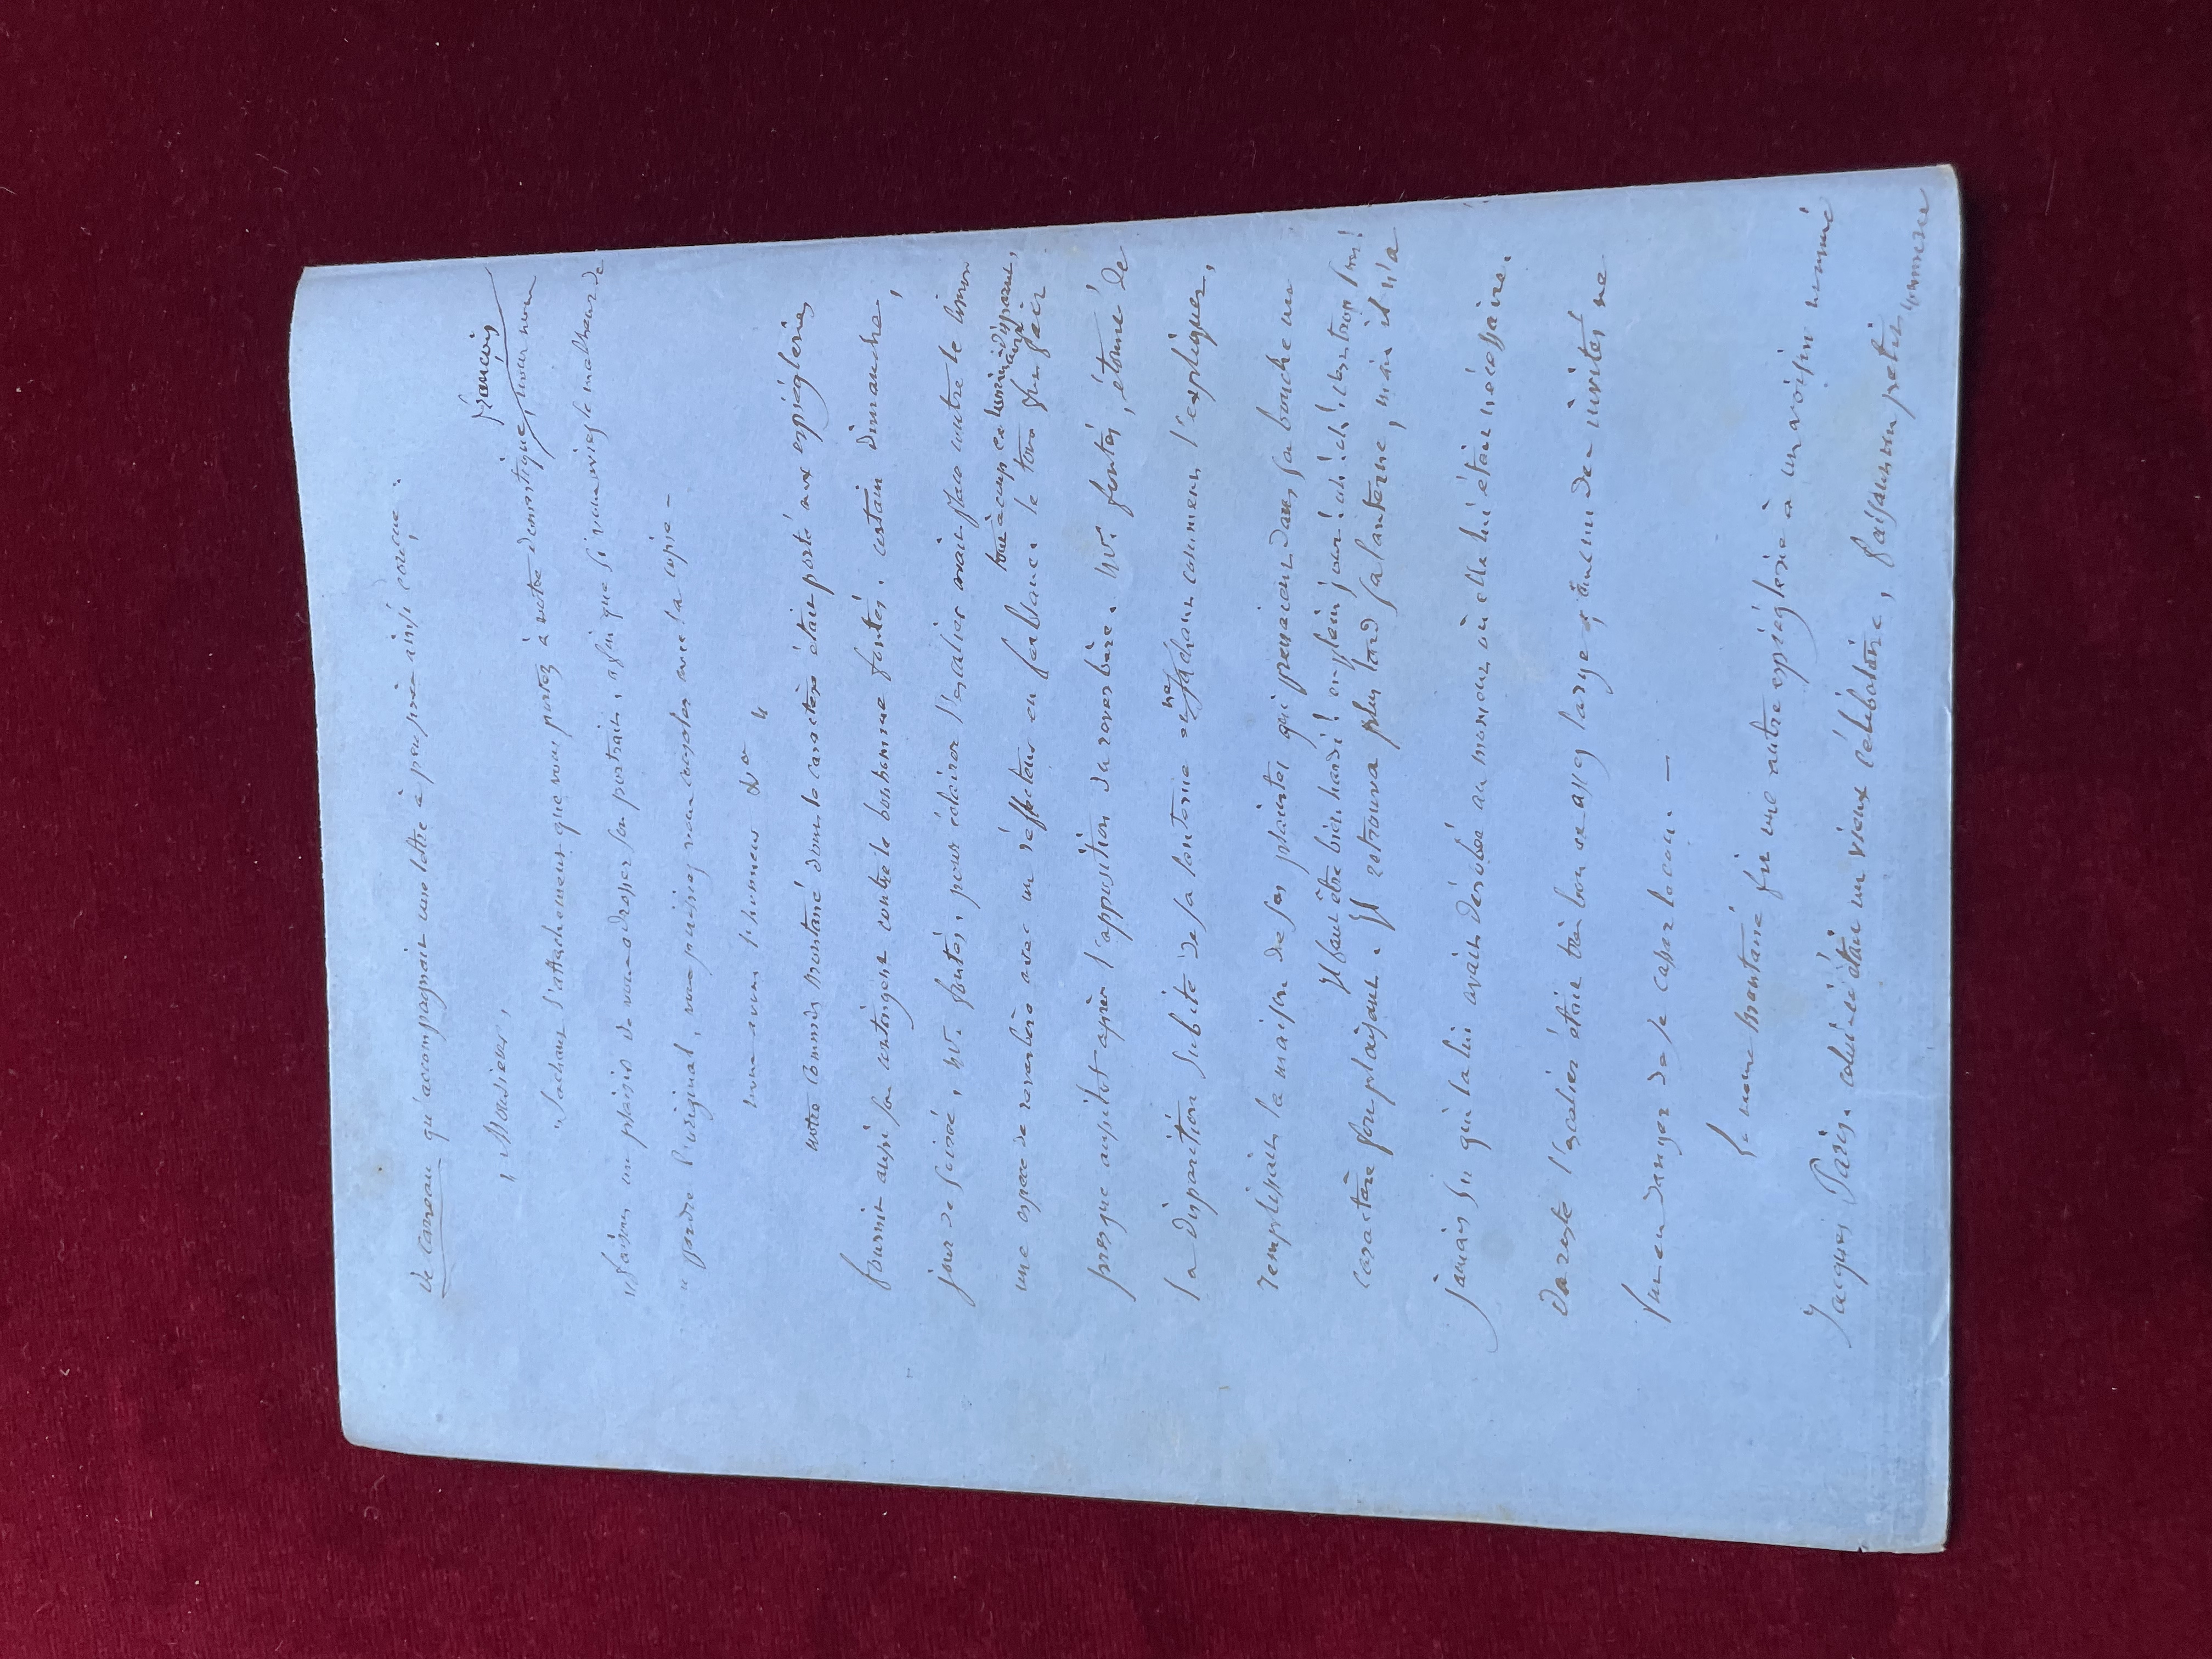 de carreau qu'accompagnait une lettre à peu près ainsi conçue.
" Monsieur,
"Sachant l'attachement que vous portez à votre domestique François, nous nous
" faisons un plaisir de vous adresser son portrait, afin que si vous aviez le malheur de
" perdre l'original, vous puissiez vous consoler avec la copie —
nous avons l'honneur &a "
notre Commis Montané dont le caractère était porté aux espiègleries
fournit aussi son contingent contre le bonhomme fontés. certain dimanche,
jour de soirée, Mr. fontés, pour éclairer l'escalier avait placé contre le limon
une espèce de réverbère avec un réflecteur en ferblanc. le tout disparut,
presque aussitôt après l'apposition du réverbère. Mr. fontés, étonné de
la disparition subite de sa lanterne et ne sachant comment l'expliquer,
remplissait la maison de ses plaintes qui prenaient dans sa bouche un
caractère fort plaisant. Il faut être bien hardi! en plein jour! ah! ah! c'est trop fort!
Il retrouva plus tard sa lanterne, mais il n'a
jamais su qui la lui avait dérobée au moment où elle lui était nécessaire.
Du reste l'escalier était très bon et assez large et aucun des invités ne
fut en danger de se casser le cou. —
Le même Montané fit une autre espièglerie à un voisin nommé
Jacques Paris. celui-ci était un vieux célibataire, faisant un petit commerce